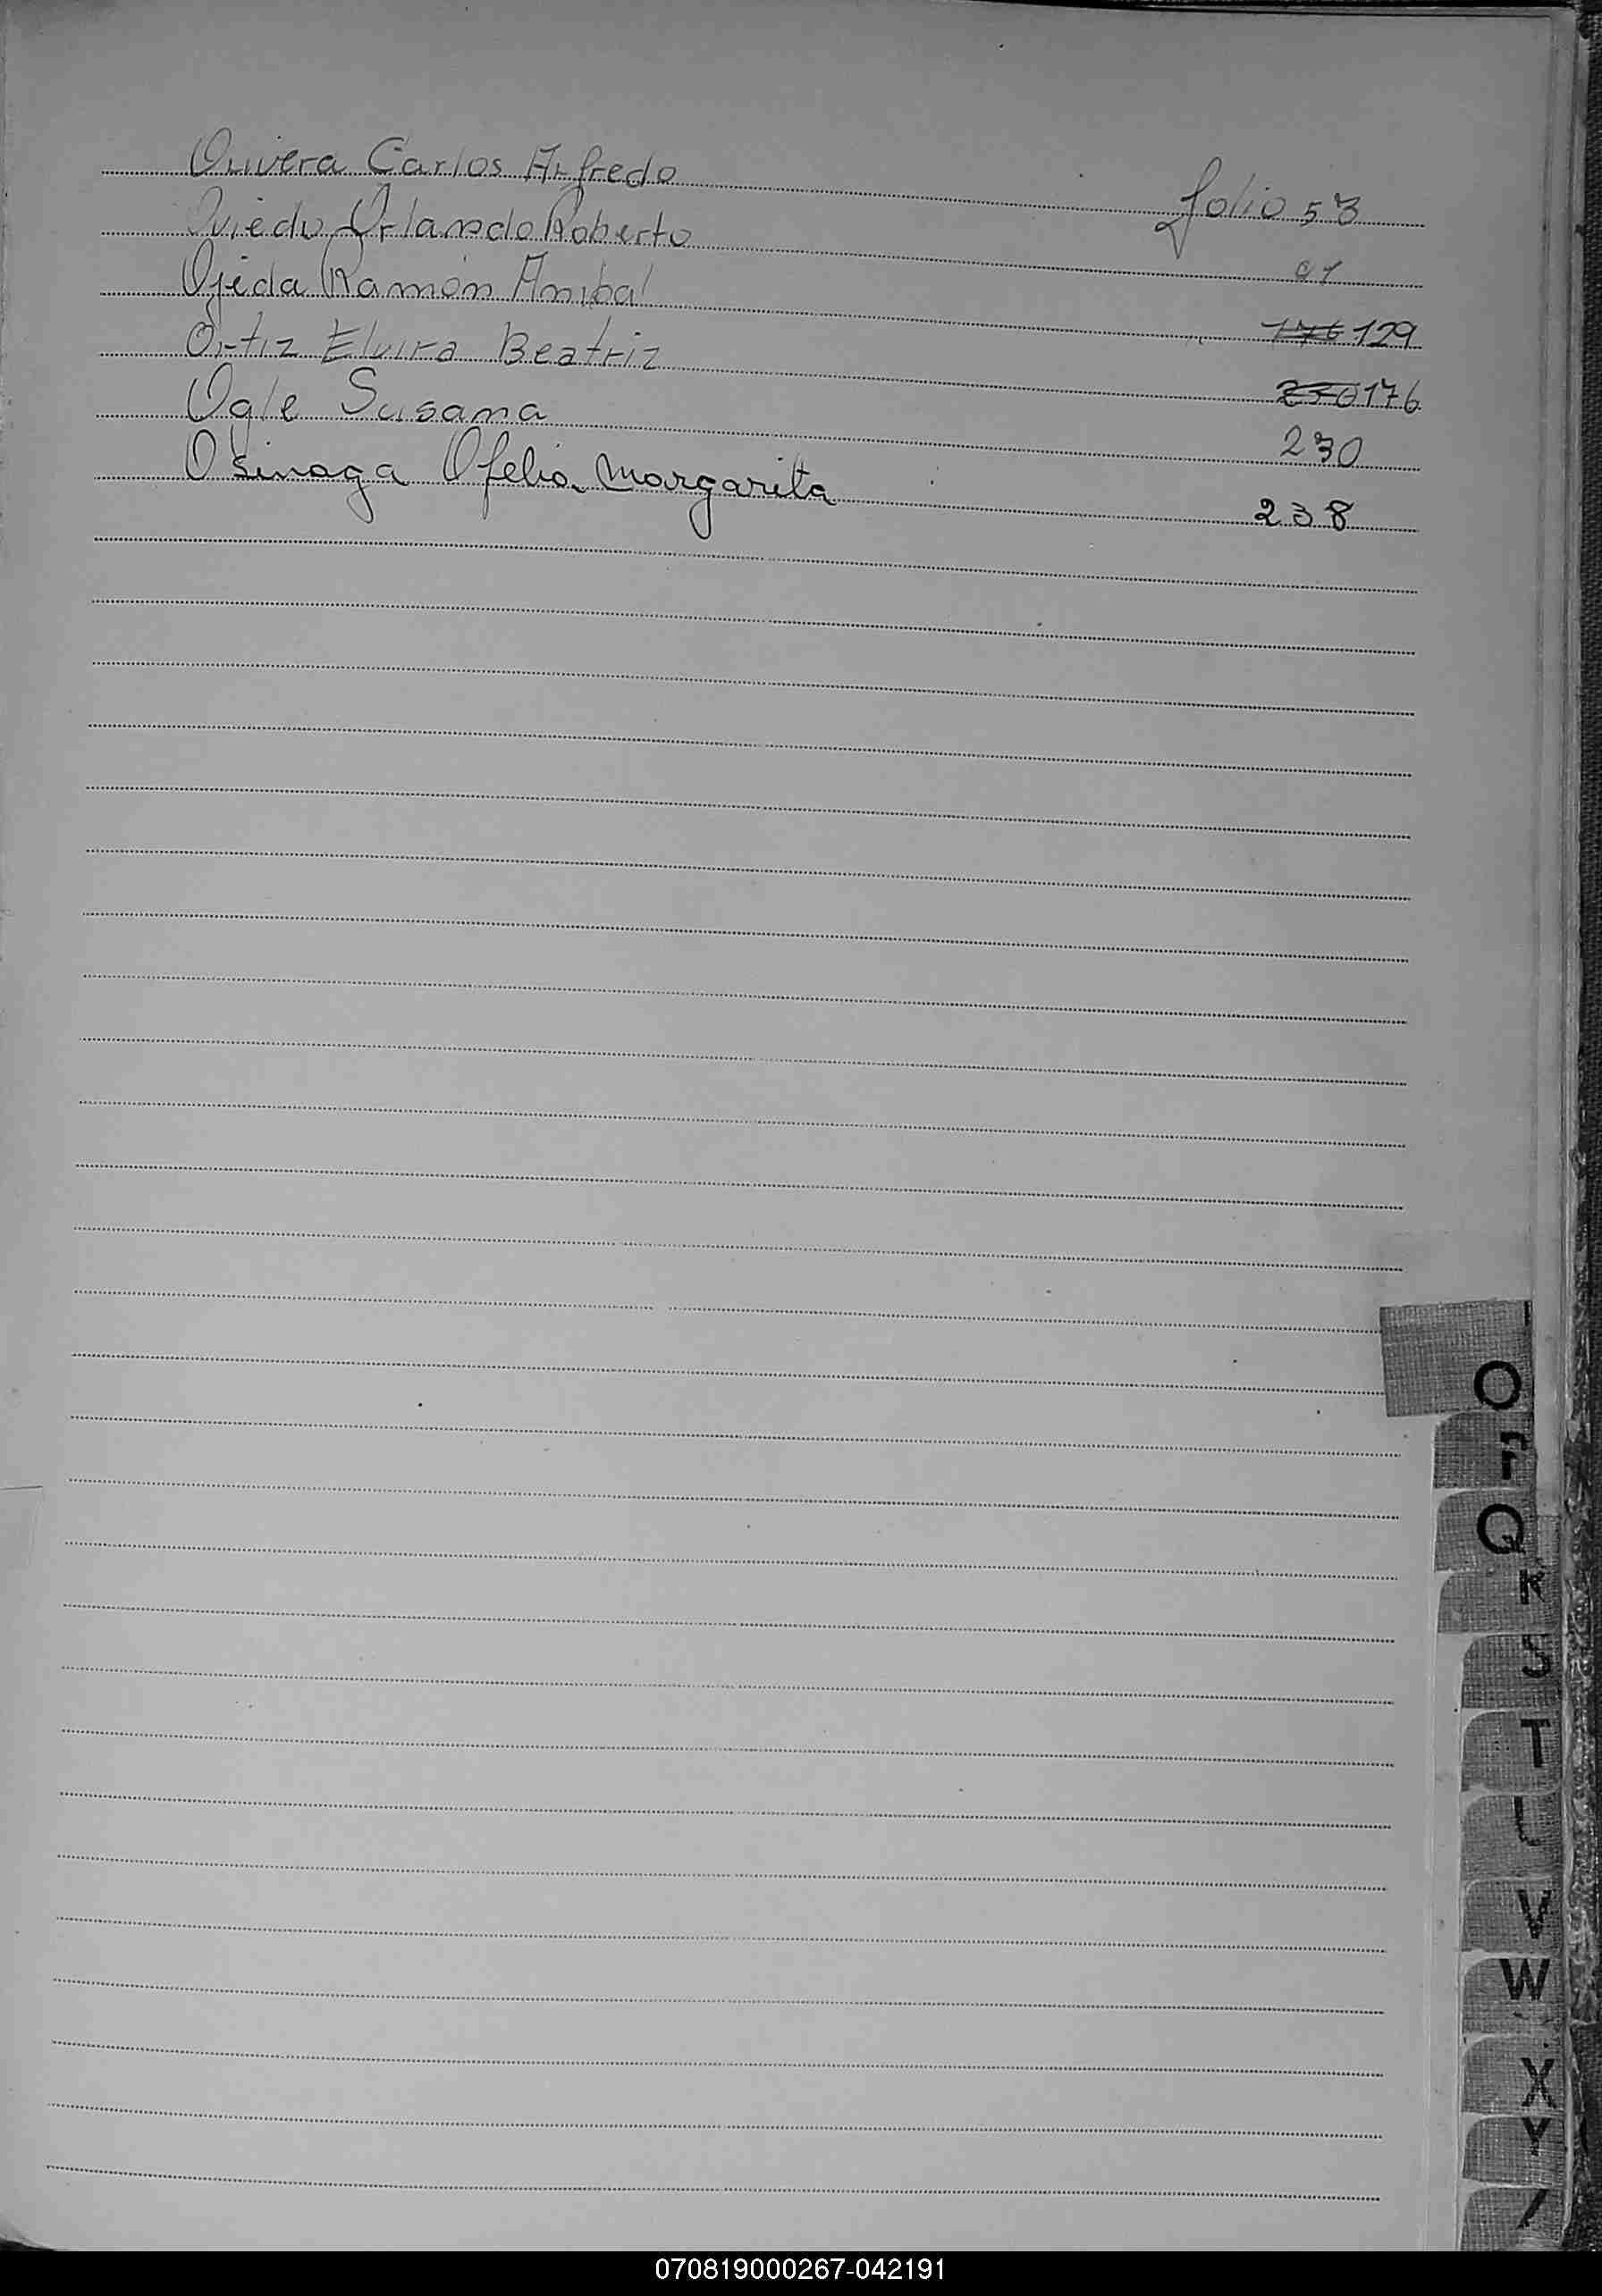 Olivera Carlos Alfredo folio 53
Oviedo Orlando Roberto 97
Ojeda Ramón Anibal 176 129
Ortiz Elvira Beatriz 230 176
Ogle Susana 230
Osinaga Ofelia Margarita 238
O
P
Q
R
S
T
V
W
X
Y
070819000267-042191